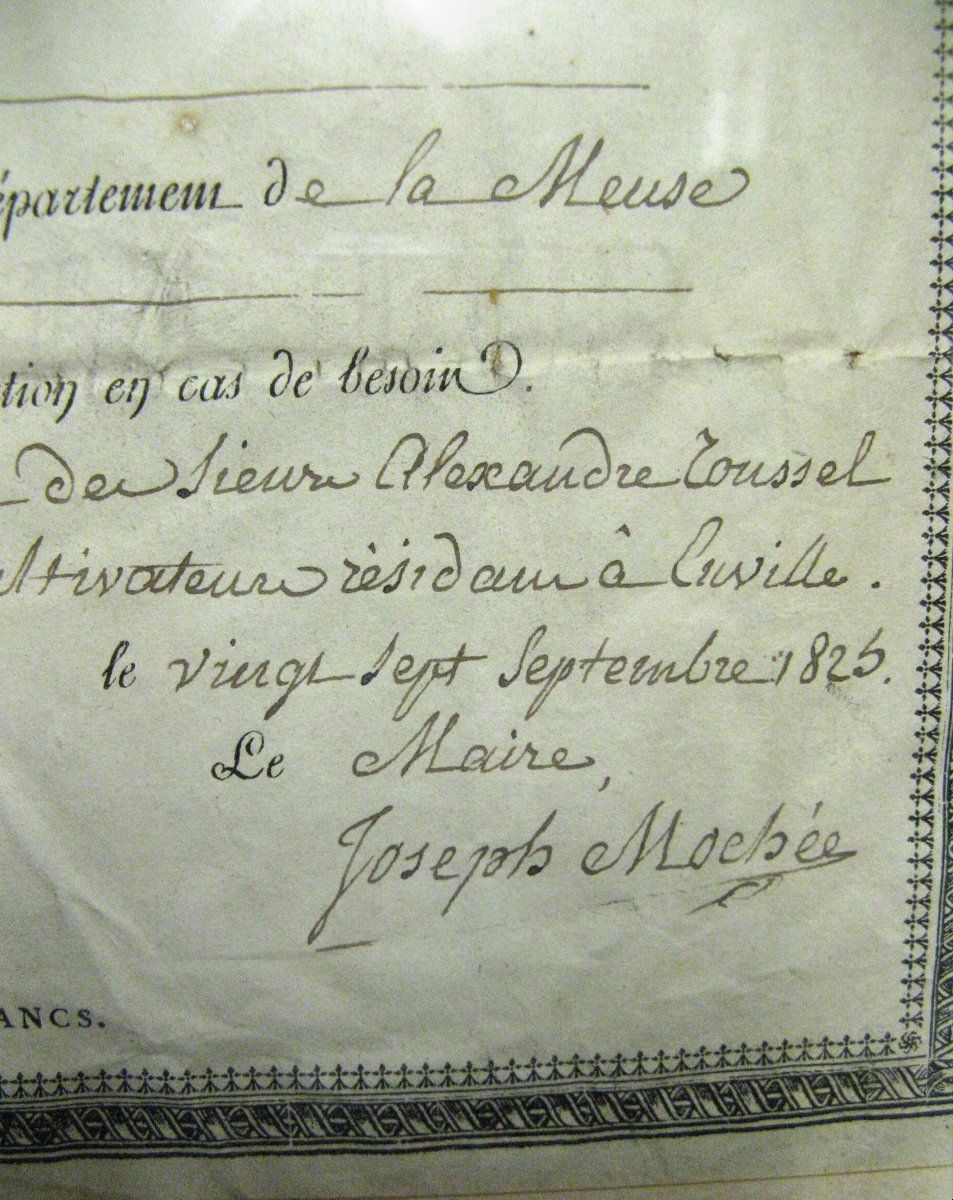 épartement de la Meuse
tion en cas de besoin.
de Sieur Alexandre Toussel
ultivateur résidant à Euville.
le vingt sept Septembre 1825.
Le Maire,
Joseph Mochée
ANCS.